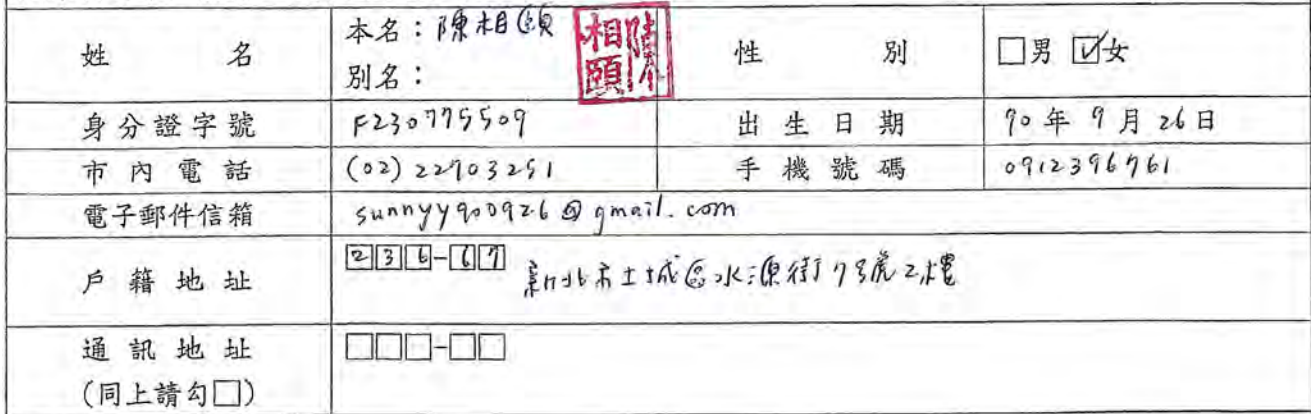 姓名
本名：陳相頤
陳相頤
別名：
性別
□男 ☑女
身分證字號
F230775509
出生日期
90年9月26日
市內電話
(02) 22903251
手機號碼
0912396761
電子郵件信箱
sunnyy900926@gmail.com
戶籍地址
236-67
新北市土城區水源街7號2樓
通訊地址
(同上請勾□)
□□□-□□